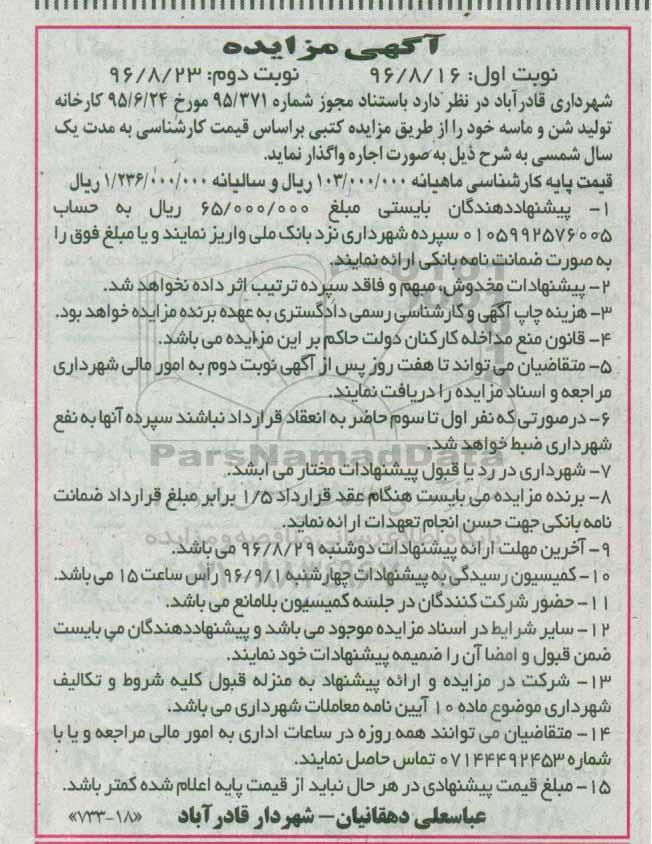 آگهی مزایده
نوبت اول: ۹۶/۸/۱۶ نوبت دوم: ۹۶/۸/۲۳
شهرداری قادرآباد در نظر دارد باستناد مجوز شماره ۹۵/۳۷۱ مورخ ۹۵/۶/۲۴ کارخانه
تولید شن و ماسه خود را از طریق مزایده کتبی براساس قیمت کارشناسی به مدت یک
سال شمسی به شرح ذیل به صورت اجاره واگذار نماید.
قیمت پایه کارشناسی ماهیانه ۱۰۳/۰۰۰/۰۰۰ ریال و سالیانه ۱/۲۳۶/۰۰۰/۰۰۰ ریال
۱- پیشنهاددهندگان بایستی مبلغ ۶۵/۰۰۰/۰۰۰ ریال به حساب
۰۱۰۵۹۹۲۵۷۶۰۰۵ سپرده شهرداری نزد بانک ملی واریز نمایند و یا مبلغ فوق را
به صورت ضمانت نامه بانکی ارائه نمایند.
۲- پیشنهادات مخدوش، مبهم و فاقد سپرده ترتیب اثر داده نخواهد شد.
۳- هزینه چاپ آگهی و کارشناسی رسمی دادگستری به عهده برنده مزایده خواهد بود.
۴- قانون منع مداخله کارکنان دولت حاکم بر این مزایده می باشد.
۵- متقاضیان می تواند تا هفت روز پس از آگهی نوبت دوم به امور مالی شهرداری
مراجعه و اسناد مزایده را دریافت نمایند.
۶- در صورتی که نفر اول تا سوم حاضر به انعقاد قرارداد نباشند سپرده آنها به نفع
شهرداری ضبط خواهد شد.
ParsNamadData
۷- شهرداری در رد یا قبول پیشنهادات مختار می ابشد.
۸- برنده مزایده می بایست هنگام عقد قرارداد ۱/۵ برابر مبلغ قرارداد ضمانت
نامه بانکی جهت حسن انجام تعهدات ارائه نماید.
پایگاه اطلاع رسانی مناقصه و مزایده
۹- آخرین مهلت ارائه پیشنهادات دوشنبه ۹۶/۸/۲۹ می باشد.
۱۰- کمیسیون رسیدگی به پیشنهادات چهارشنبه ۹۶/۹/۱ راس ساعت ۱۵ می باشد.
۱۱- حضور شرکت کنندگان در جلسه کمیسیون بلامانع می باشد.
۱۲- سایر شرایط در اسناد مزایده موجود می باشد و پیشنهاددهندگان می بایست
ضمن قبول و امضا آن را ضمیمه پیشنهادات خود نمایند.
۱۳- شرکت در مزایده و ارائه پیشنهاد به منزله قبول کلیه شروط و تکالیف
شهرداری موضوع ماده ۱۰ آیین نامه معاملات شهرداری می باشد.
۱۴- متقاضیان می توانند همه روزه در ساعات اداری به امور مالی مراجعه و یا با
شماره ۰۷۱۴۴۴۹۲۴۵۳ تماس حاصل نمایند.
۱۵- مبلغ قیمت پیشنهادی در هر حال نباید از قیمت پایه اعلام شده کمتر باشد.
عباسعلی دهقانیان- شهردار قادرآباد «۷۳۳-۱۸»